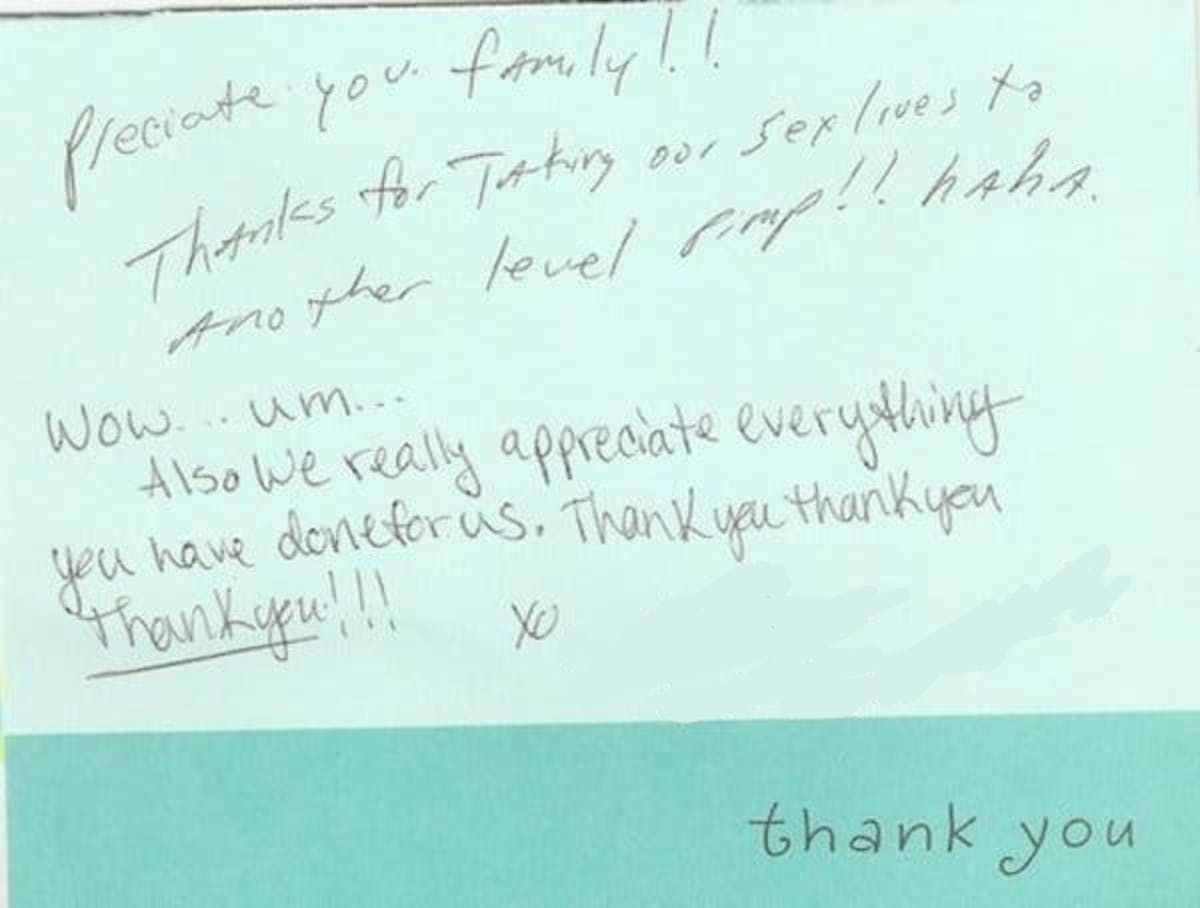 Preciate you family!!
Thanks for Taking our sex lives to
another level pimp!! haha.
Wow... um...
Also we really appreciate everything
you have done for us. Thank you thank you
thank you!!! xo
thank you